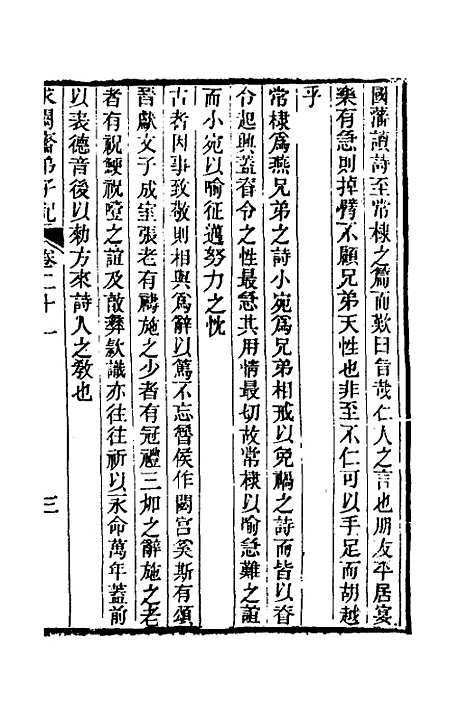 國藩讀詩至常棣之篇而歎曰旨哉仁人之言也朋友平居宴
樂有急則掉臂不顧兄弟天性也非至不仁可以手足而胡越
乎
常棣爲燕兄弟之詩小宛爲兄弟相戒以免禍之詩而皆以脊
令起興蓋脊令之性最急其用情最切故常棣以喻急難之誼
而小宛以喻征邁努力之忱
古者因事致敬則相與爲辭以篤不忘魯侯作閟宮奚斯有頌
晉獻文子成室張老有禱施之少者有冠禮三加之辭施之老
者有祝鯁祝噎之誼及敲彝款識亦往往祈以永命萬年蓋前
以表德音後以勑方來詩人之敎也
求闕齋弟子記 卷二十一 三